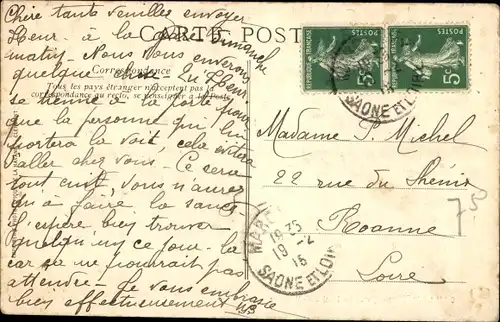 Chère tante veuillez envoyer
Fleur à la gare Dimanche
matin. Nous vous enverrons
quelque chose. Que Fleur
se tienne à la porte pour
que la personne qui lui
portera la voit, cela évitera
d'aller chez vous. Ce sera
tout cuit, vous n'aurez
qu'à faire la sauce.
J'espère bien trouver
quelqu'un ce jour-là
car ça ne pourrait pas
attendre. Je vous embrasse
bien affectueusement
CARTE POSTALE
Correspondance
Tous les pays étranger n'acceptent pas la
correspondance au recto, se renseigner à la Poste
REPUBLIQUE FRANÇAISE
5c
5c
SAONE ET LOIRE
Madame P. Michel
22 rue du Phénix
Roanne
Loire
19 35
19 -2
15
SAONE ET LOIRE
750